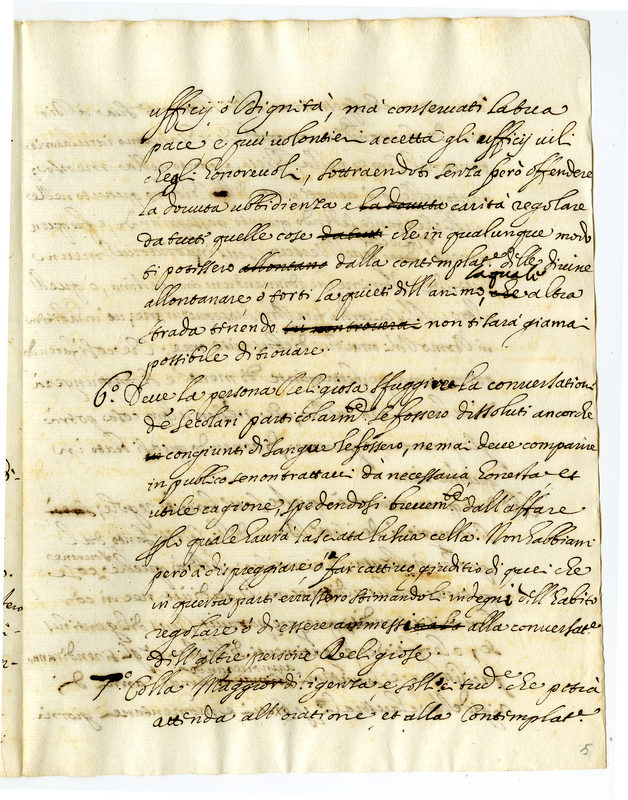 ufficij ó Dignità, mà conservati la tua
pace e più volontieri accetta gli ufficij vili
che gli honorevoli, sottraendoti senza però offendere
la dovuta ubbidienza e la dovuta carità regolare
da tutte quelle cose da tutti che in qualunque modo
ti potessero allontane dalla contemplat.e delle divine
allontanare ó torti la quiete dell'animo, che la quale altra
strada tenendo non ti sarà giamai
possibile di trovare.
6.o Deve la persona Religiosa sfuggire la conversatione
de secolari particolarm.te se fossero dissoluti ancorche
congiunti di sangue le fossero, ne mai deve comparire
in publico se non trattavi dà necessaria honesta et
utile cagione, spedendosi brevem.te dall'affare
p lo quale haurà lasciata la sua cella. Non habbiam
però à dispreggiare ó far cattivo giuditio di quei che
in questa parti errassero stimandoli indegni dell'habito
regolare ó di essere ammessi alla conversat.e
dell'altre persone Religiose.
7.o Colla Maggior diligenza e sollecitud.e che potrà
attenda all'oratione, et alla Contemplat.e
5